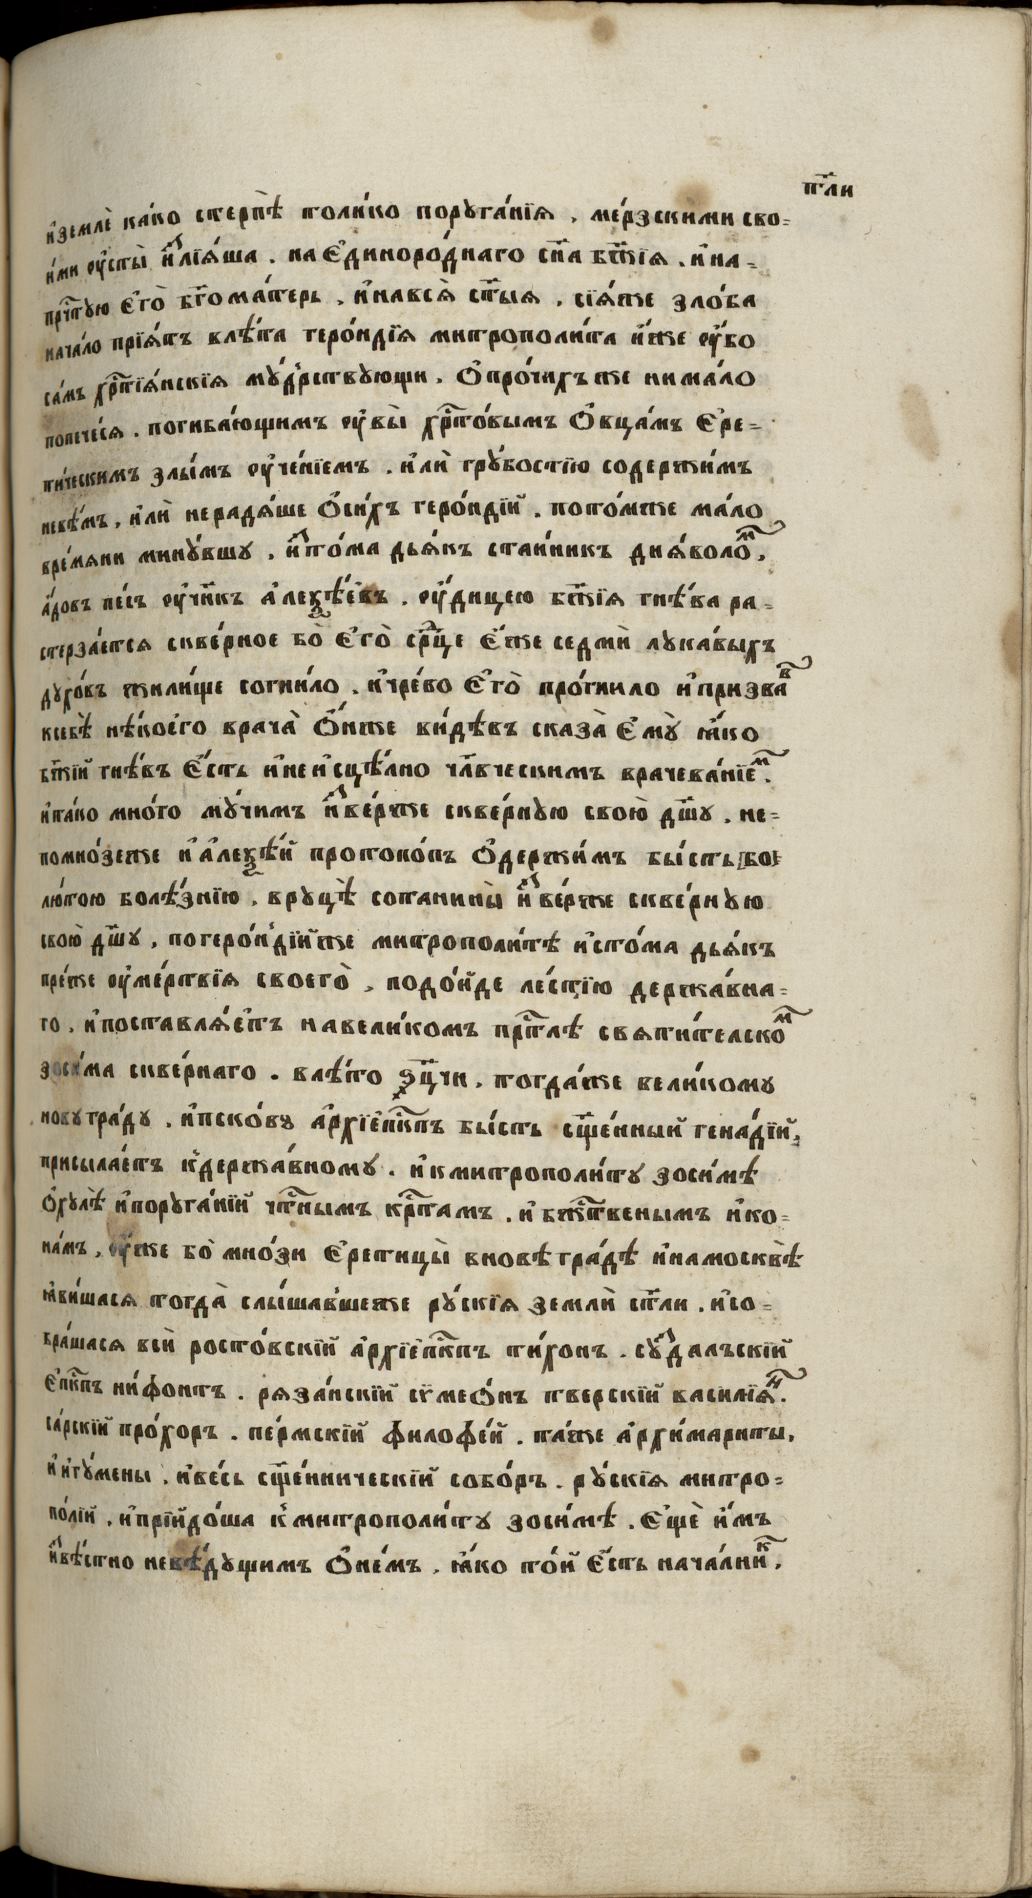 п҃ли
и҆землѐ ка́ко стерпѣ̀ толи́ко порꙋга́нїѧ . ме́рзскими сво=
и́ми ѹ҆сты̀ и҆злїѧ́ша . на є҆диноро́днаго сн҃а бж҃їѧ . и҆на=
прⷭ҇тꙋю є҆го̀ бг҃ома́терь . и҆навсѧ̀ ст҃ыѧ . сїѧ́же зло́ба
нача́ло прїѧ́тъ влѣ́та геро́ндїѧ митрополи́та и҆́же ѹ҆́бо
са́мъ хрⷭ҇тїѧ́нскїѧ мꙋ́дрствꙋющи . ѡ҆про́чихъже нима́ло
попече́сѧ . погиба́ющимъ ѹ҆вы̀ хрⷭ҇то́вымъ ѻ҆вца́мъ є҆ре=
ти́ческимъ злы́мъ ѹ҆че́нїемъ . и҆лѝ грꙋ́бостїю содержи́мъ
невѣ́мъ , и҆лѝ нерадѧ́ше ѡ҆си́хъ геро́ндїй . пото́мже ма́ло
вре́мѧни минꙋ́вшꙋ . и҆сто́ма дьѧ́къ стаи́нникъ диѧ́воло́ᷟ ,
а҆́довъ пе́съ ѹ҆чн҃къ а҆леѯѣ́евъ . ѹ҆́дицею бж҃їѧ гнѣ́ва ра=
стерза́етсѧ скве́рное бо̀ є҆го̀ срⷣце є҆́же седмѝ лꙋка́выхъ
дꙋхо́въ жили́ще согни́ло . и҆чре́во є҆го̀ про́гнило и҆призва́ⷡ
ксебѣ̀ нѣ́коего врача̀ ѻ҆́нже ви́дѣвъ сказа̀ є҆мꙋ̀ ꙗ҆́ко
бж҃їй гнѣ́въ є҆́сть и҆не и҆сцѣ́лно чл҃вческимъ врачева́нїе́ᷟ .
и҆та́ко мно́го мꙋ́чимъ и҆зве́рже скве́рнꙋю свою̀ дш҃ꙋ . не=
помно́зеже и҆а҆леѯѣ́й протопо́пъ ѡ҆держи́мъ бы́сть
лю́тою болѣ́знїю , врꙋцѣ̀ сотанины̀ и҆зве́рже скве́рнꙋю
свою̀ дш҃ꙋ , погеро́ндїйже митрополи́тѣ и҆сто́ма дьѧ́къ
пре́же ѹ҆ме́рствїѧ своегѡ̀ , подо́йде ле́стїю держа́вна=
го , и҆поставлѧ́етъ навели́комъ прⷭ҇тлѣ свѧти́телско́ᷟ
зоси́ма скве́рнаго . влѣ́то ҂ѕ҃цчи . тогда́же вели́комꙋ
новꙋгра́дꙋ . и҆пско́вꙋ а҆рхїе҆пⷭ҇кпъ бы́сть сщ҃е́нный гена́дїй ,
присыла́етъ кдержа́вномꙋ . и҆кмитрополи́тꙋ зоси́мѣ
ѡ҆хꙋлѣ̀ и҆порꙋга́нїй чтⷭ҇нымъ крⷭ҇тамъ . и҆бжⷭ҇твенымъ и҆ко=
на́мъ , ѹ҆́же бо̀ мно́зи є҆ретицы̀ вновѣгра́дѣ и҆намосквѣ̀
ꙗ҆ви́шасѧ тогда̀ слы́шавшеже рꙋ́скїѧ землѝ ст҃ли . и҆со=
бра́шасѧ всѝ росто́вскїй а҆рхїе҆пⷭ҇кпъ ти́хонъ . сꙋ́здалъскїй
є҆пⷭ҇кпъ ни́фонтъ . рѧза́нскїй сѷмео́нъ тверскїй васиⷩлїѧ́ .
са́рскїй про́хоръ . пе́рмскїй филофе́й . та́же а҆рхимариты ,
и҆и҆гꙋ́мены . и҆ве́сь сщ҃е́нническїй собо́ръ . рꙋ́скїѧ митро=
по́лїй . и҆прїйдо́ша кмитрополи́тꙋ зоси́мѣ . є҆щѐ и҆́мъ
и҆звѣ́стно невѣ́дꙋщимъ ѡ҆не́мъ . ꙗ҆́ко то́й є҆́сть нача́лниⷦ .